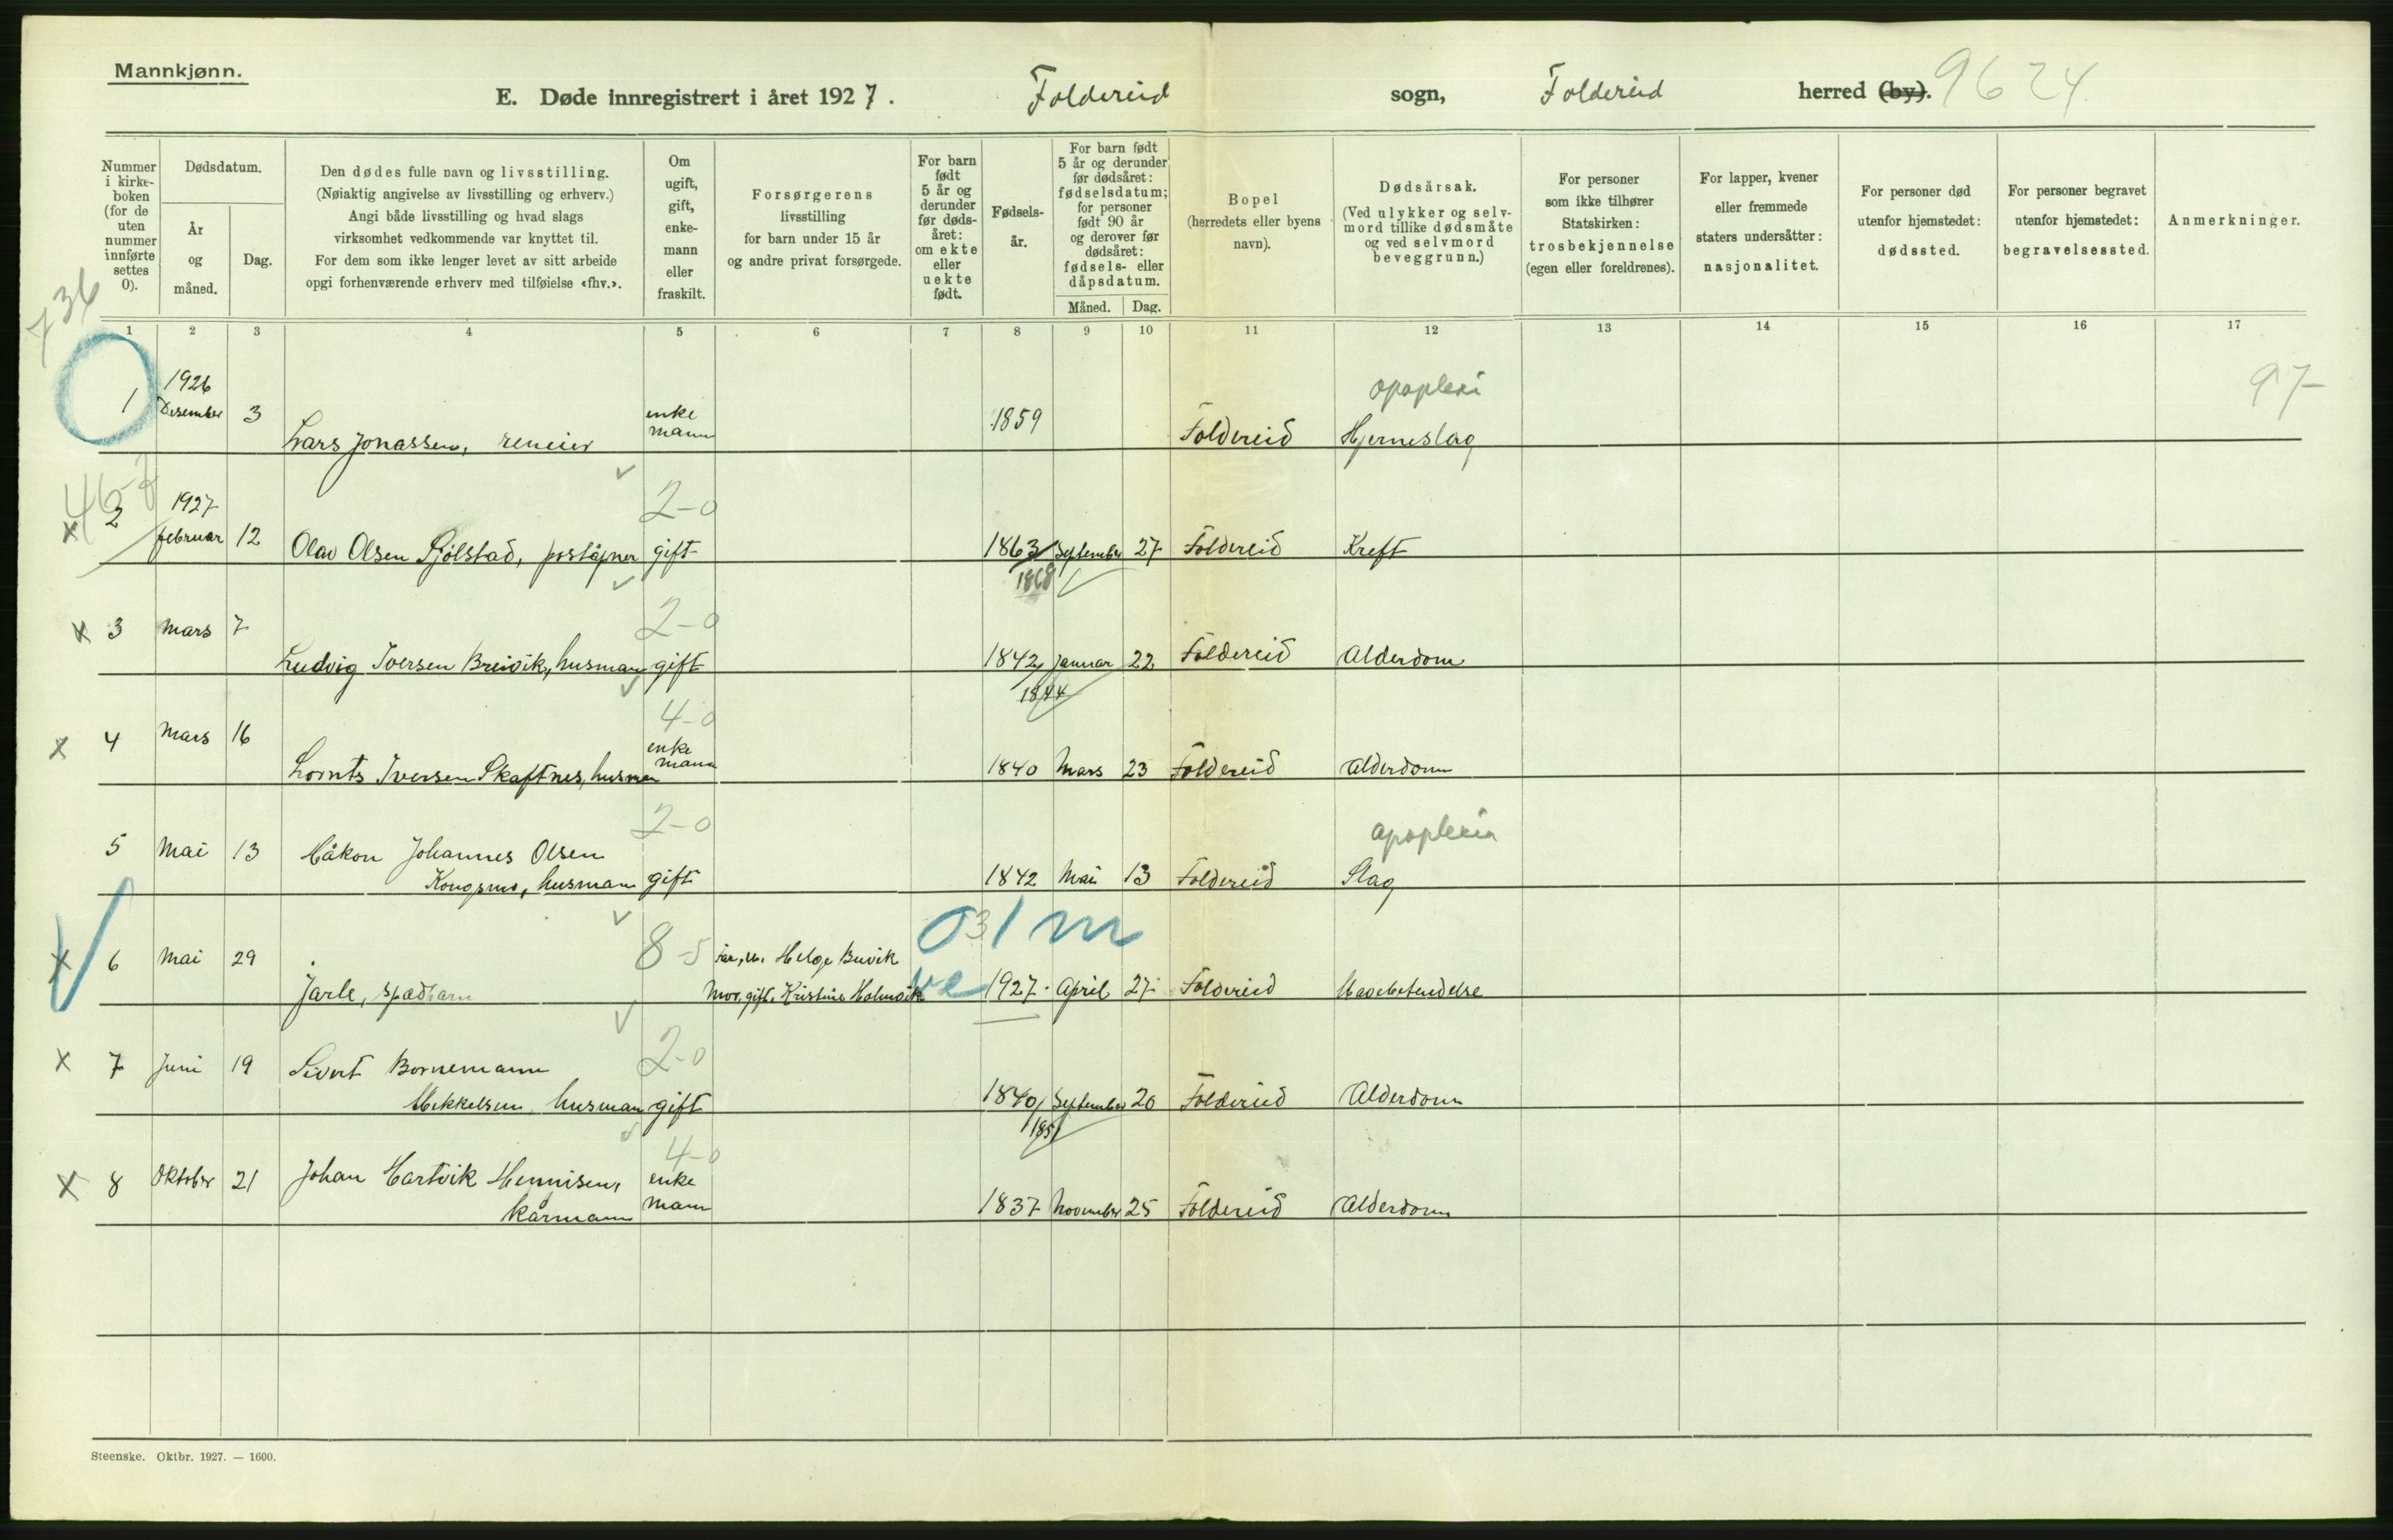 Mannkjønn.
E. Døde innregistrert i året 1927. Foldereid sogn, Foldereid herred (by). 9624
Nummer i kirkeboken (for de uten nummer innførte settes 0).
Dødsdatum.
År og måned.
Dag.
Den dødes fulle navn og livsstilling.
(Nøiaktig angivelse av livsstilling og erhverv.)
Angi både livsstilling og hvad slags
virksomhet vedkommende var knyttet til.
For dem som ikke lenger levet av sitt arbeide
opgi forhenværende erhverv med tilføielse «fhv.».
Om ugift, gift, enkemann eller fraskilt.
Forsørgerens
livsstilling
for barn under 15 år
og andre privat forsørgede.
For barn født 5 år og derunder før dødsåret: om ekte eller uekte født.
Fødselsår.
For barn født 5 år og derunder før dødsåret: fødselsdatum; for personer født 90 år og derover før dødsåret: fødsels- eller dåpsdatum.
Måned.
Dag.
Bopel
(herredets eller byens
navn).
Dødsårsak.
(Ved ulykker og selvmord tillike dødsmåte og ved selvmord beveggrunn.)
For personer
som ikke tilhører
Statskirken:
trosbekjennelse
(egen eller foreldrenes).
For lapper, kvener
eller fremmede
staters undersåtter:
nasjonalitet.
For personer død
utenfor hjemstedet:
dødssted.
For personer begravet
utenfor hjemstedet:
begravelsessted.
Anmerkninger.
736
1 2 3 4 5 6 7 8 9 10 11 12 13 14 15 16 17
1926 apoplexi 97
1 Desember 3 Lars Jonassen, enke mann 1859 Foldereid Hjerneslag
46-2 1927 2-0
x 2 februar 12 Olav Olsen Sjølstad, poståpner gift 1863 September 27 Foldereid Kreft
1868
2-0
x 3 Mars 7 Ludvig Iversen Breivik, husman gift 1842 Januar 22 Foldereid Alderdom
1844
4-0
x 4 Mars 16 Lornts Iversen Skaftnes, husman enke mann 1840 Mars 23 Foldereid Alderdom
2-0 apoplexia
5 Mai 13 Håkon Johannes Olsen
Kongsmo, husman gift 1842 Mai 13 Foldereid Slag
031 m
x 6 Mai 29 8-5 Far, u. Helge Buvik
Jarle, spædbarn Mor, gift, Kristine Holmvik ve 1927 April 27 Foldereid Mavebetendelse
2-0
x 7 Juni 19 Sivert Bornemann
Mekkelsen, husman gift 1840 September 20 Foldereid Alderdom
1851
4-0
x 8 Oktober 21 Johan Hartvik Hennisen,
kårmann enke mann 1837 November 25 Foldereid Alderdom
Steenske. Oktbr. 1927. — 1600.